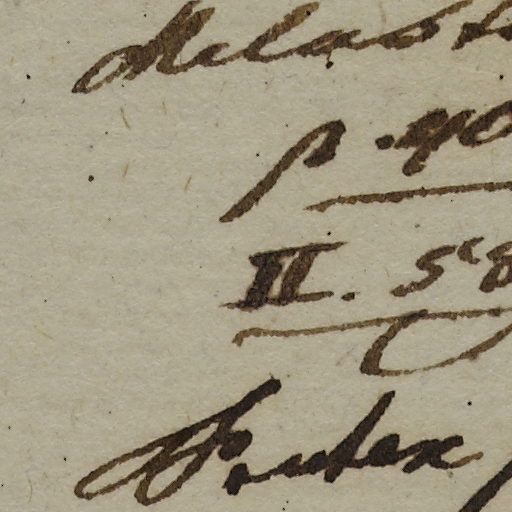 Melast
p. 40
II. 58
Frutex